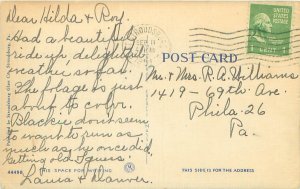 Dear Hilda & Roy,
Had a beautiful
ride up, delightful
weather so far.
The foliage is just
about to color.
Blackie doesn't seem
to want to run as
much as he once did
getting old I guess.
Laura & Danver.
POST CARD
Mr. & Mrs. R. A. Williams
1419-69th Ave.
Phila. 26
Pa.
UNITED STATES POSTAGE
1 CENT 1
44490
THIS SPACE FOR WRITING
THIS SIDE IS FOR THE ADDRESS